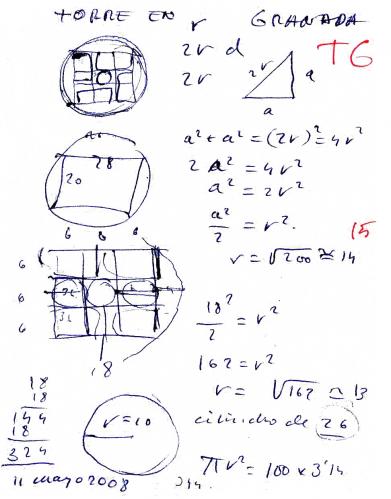 TORRE EN GRANADA
r
2r d
2r
TG
2r
a
a
a² + a² = (2r)² = 4r²
2 a² = 4r²
a² = 2r²
a²/2 = r².
15
r = √200 ≅ 14
28
20
6 6 6
6
6
6
18
18²/2 = r²
162 = r²
r = √162 ≃ 13
cilindro de 26
18
18
144
18
324
r = 10
πr² = 100 x 3'14
11 mayo 2008
314.